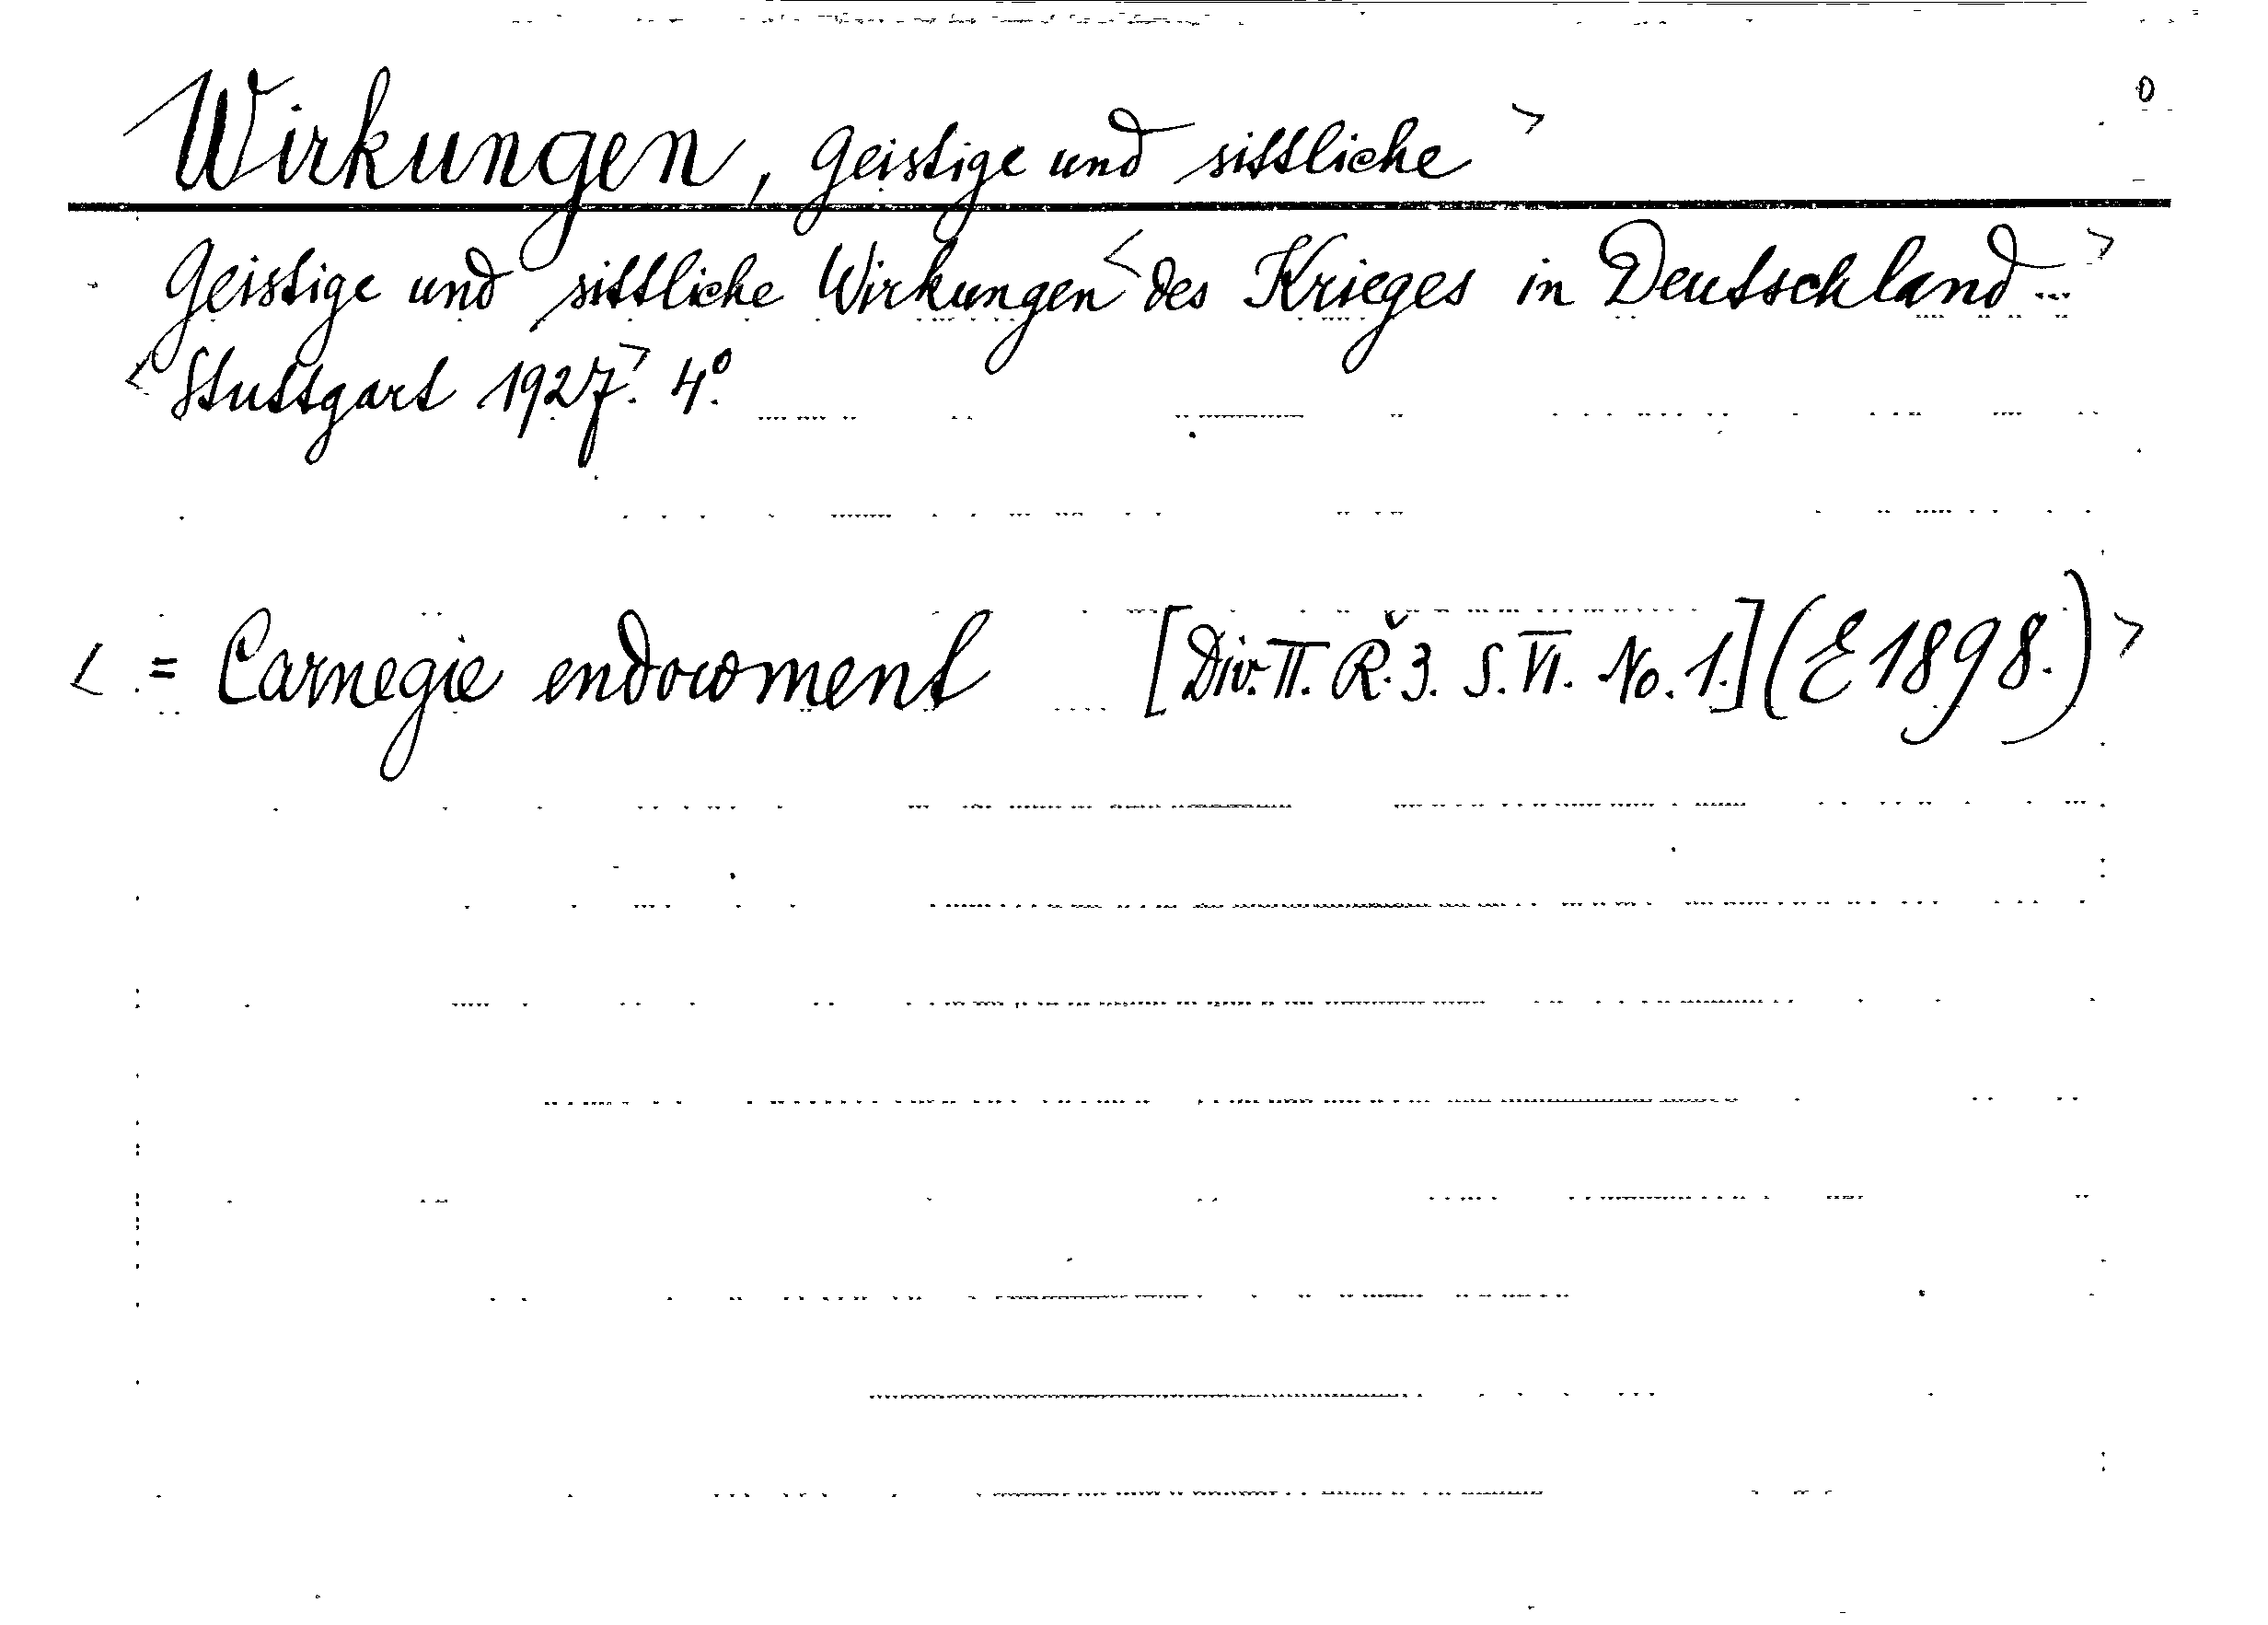 Wirkungen, Geistige und sittliche >
Geistige und sittliche Wirkungen < des Krieges in Deutschland... >
< Stuttgart 1927 >. 4º.
< = Carnegie endowment [Div. II. Ř. 3. S. VI. No. 1.] (E 1898.) >